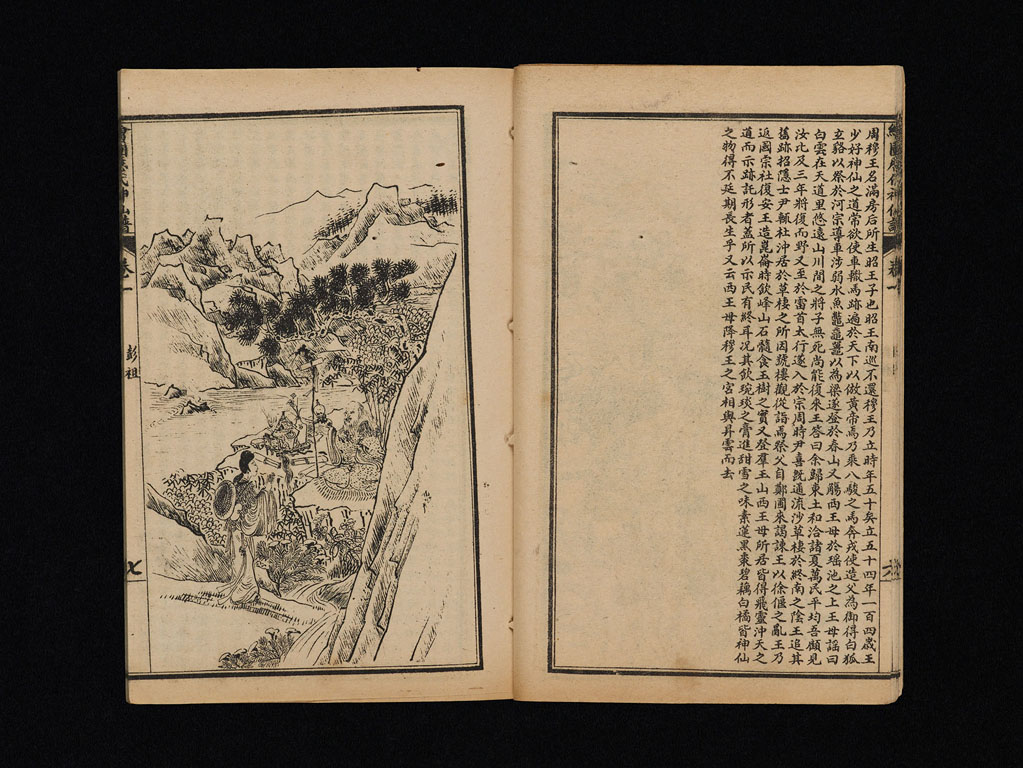 繪圖歷代神仙譜
卷一
六
周穆王名滿房后所生昭王子也昭王南巡不還穆王乃立時年五十矣立五十四年一百四歲王
少好神仙之道常欲使車轍馬跡遍於天下以倣黃帝焉乃乘八駿之馬奔戎使造父為御得白狐
玄貉以祭於河宗導車涉弱水魚鼈黿鼉以為梁遂登於舂山又觴西王母於瑤池之上王母謠曰
白雲在天道里悠遠山川間之將子無死尚能復來王答曰余歸東土和洽諸夏萬民平均吾顧見
汝比及三年將復而野又至於雷首太行遂入於宗周時尹喜既通流沙草棲於終南之陰王追其
舊跡招隱士尹輒杜沖居於草棲之所因號樓觀從詣焉祭父自鄭圃來謁諫王以徐偃之亂王乃
返國宗社復安王造崑崙時飲峰山石髓食玉樹之實又登羣玉山西王母所居皆得飛靈沖天之
道而示跡託形者蓋所以示民有終耳況其飲琬琰之膏進甜雪之味素蓮黑棗碧藕白橘皆神仙
之物得不延期長生乎又云西王母降穆王之宮相與昇雲而去
繪圖歷代神仙譜
卷一
彭祖
七